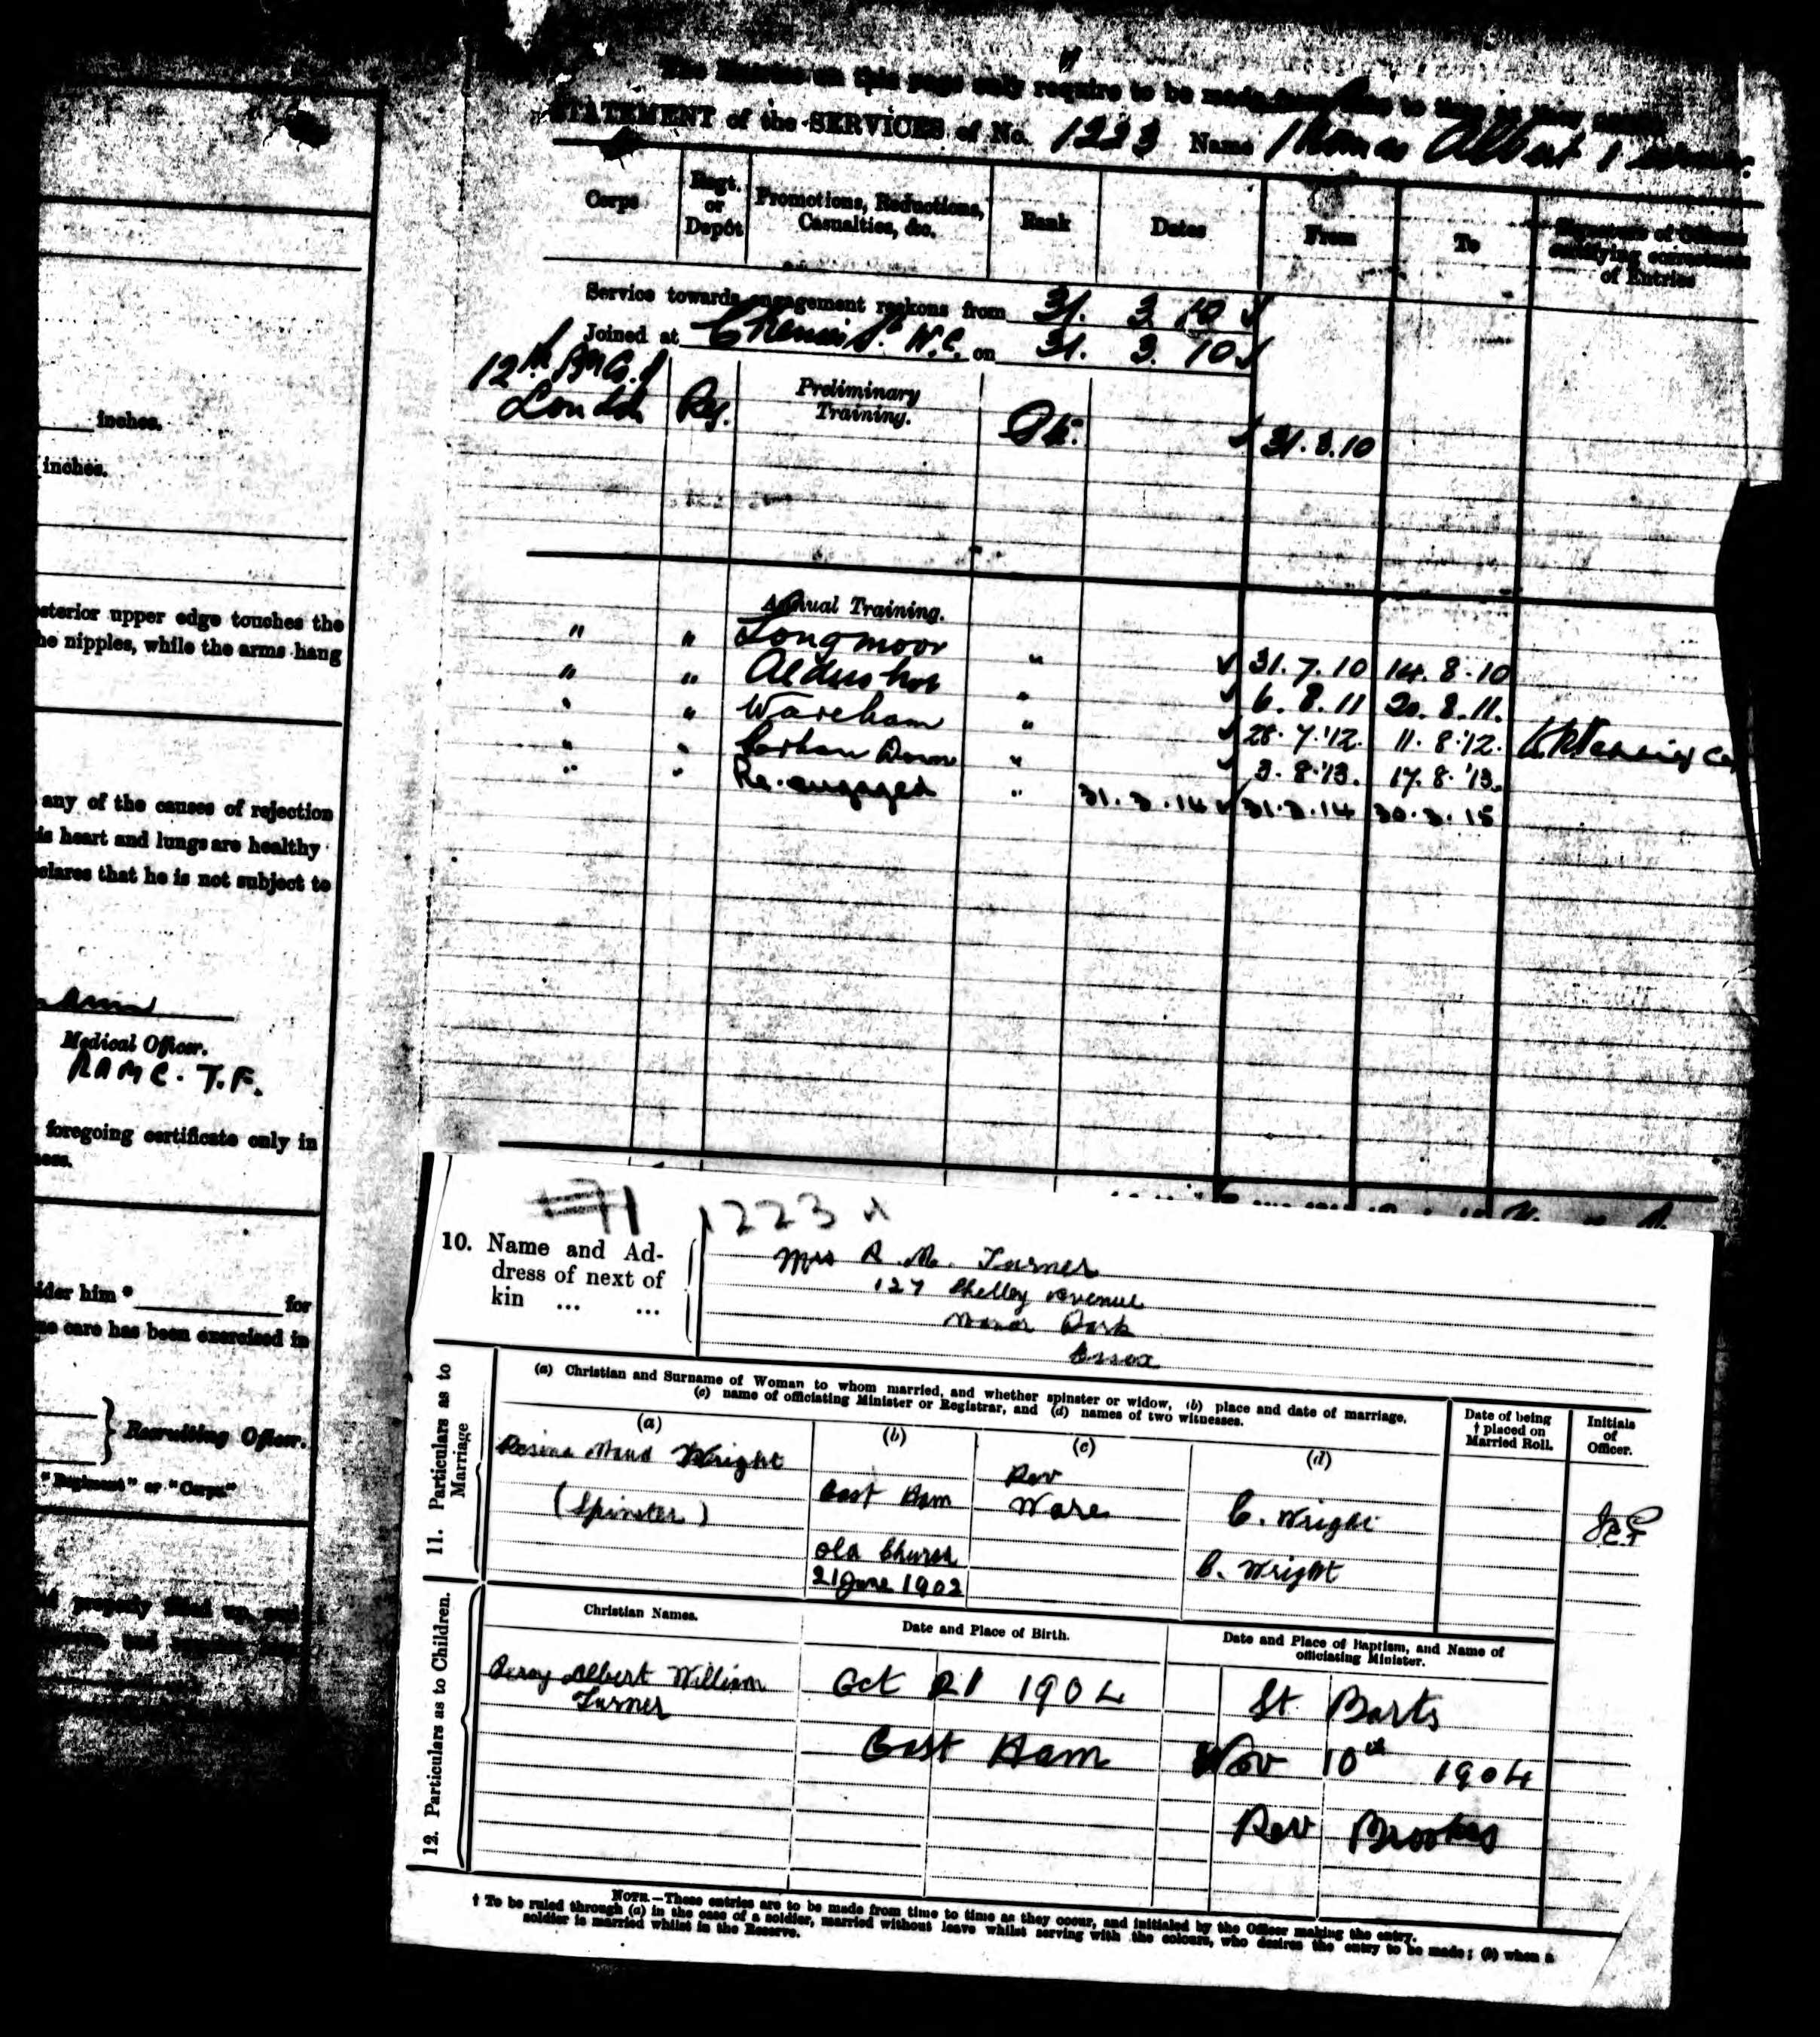 inches.
inches.
sterior upper edge touches the
he nipples, while the arms hang
any of the causes of rejection
is heart and lungs are healthy
clares that he is not subject to
Medical Officer.
RAMC. T.F.
foregoing certificate only in
ider him * for
care has been exercised in
Recruiting Officer.
"Regiment" or "Corps"
The Entries on this page only require to be made from time to time as they
STATEMENT of the SERVICES of No. 1223 Name Thomas Albert Turner
Corps
Regt. or Depôt
Promotions, Reductions, Casualties, &c.
Rank
Dates
From
To
Signature of Officers certifying correctness of Entries
Service towards engagement reckons from 31. 3 10
Joined at Chenies St. W.C. on 31. 3. 10
12th
London Reg. Preliminary Training. Pte. 31.3.10
Annual Training.
" " Longmoor " 31.7.10 14.8.10
" " Aldershot " 6.8.11 20.8.11.
" " Wareham " 28.7.'12. 11.8.'12.
" " Down " 3.8.'13. 17.8.'13.
" " Re-engaged " 31.3.14 31.3.14 30.3.15
71 1223
10. Name and Ad-
dress of next of
kin ... ...
Mrs R. M. Turner
127 Shelley Avenue
Manor Park
Essex
11. Particulars as to Marriage
(a) Christian and Surname of Woman to whom married, and whether spinster or widow, (b) place and date of marriage,
(c) name of officiating Minister or Registrar, and (d) names of two witnesses.
Date of being † placed on Married Roll.
Initials of Officer.
(a)
(b)
(c)
(d)
Rosina Maud Wright
(Spinster)
East Ham
Old Church
21 June 1902
Rev
Ware
C. Wright
C. Wright
12. Particulars as to Children.
Christian Names.
Date and Place of Birth.
Date and Place of Baptism, and Name of officiating Minister.
Percy Albert William
Turner
Oct 21 1904
East Ham
St. Barts
Nov 10th 1904
Rev Brookes
NOTE.—These entries are to be made from time to time as they occur, and initialed by the Officer making the entry.
† To be ruled through (a) in the case of a soldier, married without leave whilst serving with the colours, who desires the entry to be made; (b) when a
soldier is married whilst in the Reserve.